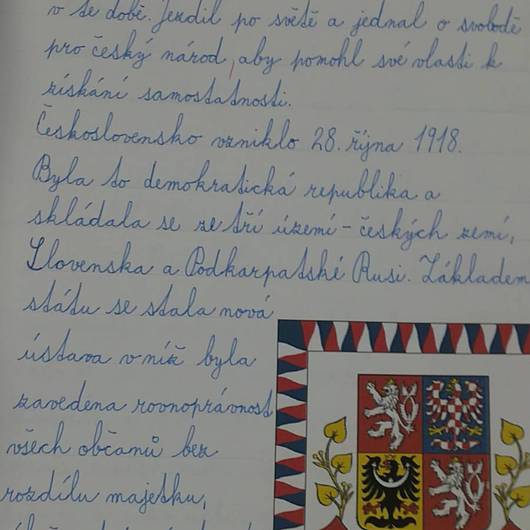 v té době. Jezdil po světě a jednal o svobodě
pro český národ, aby pomohl své vlasti k
získání samostatnosti.
Československo vzniklo 28. října 1918.
Byla to demokratická republika a
skládala se ze tří území - českých zemí,
Slovenska a Podkarpatské Rusi. Základem
státu se stala nová
ústava v níž byla
zavedena rovnoprávnost
všech občanů bez
rozdílu majetku,